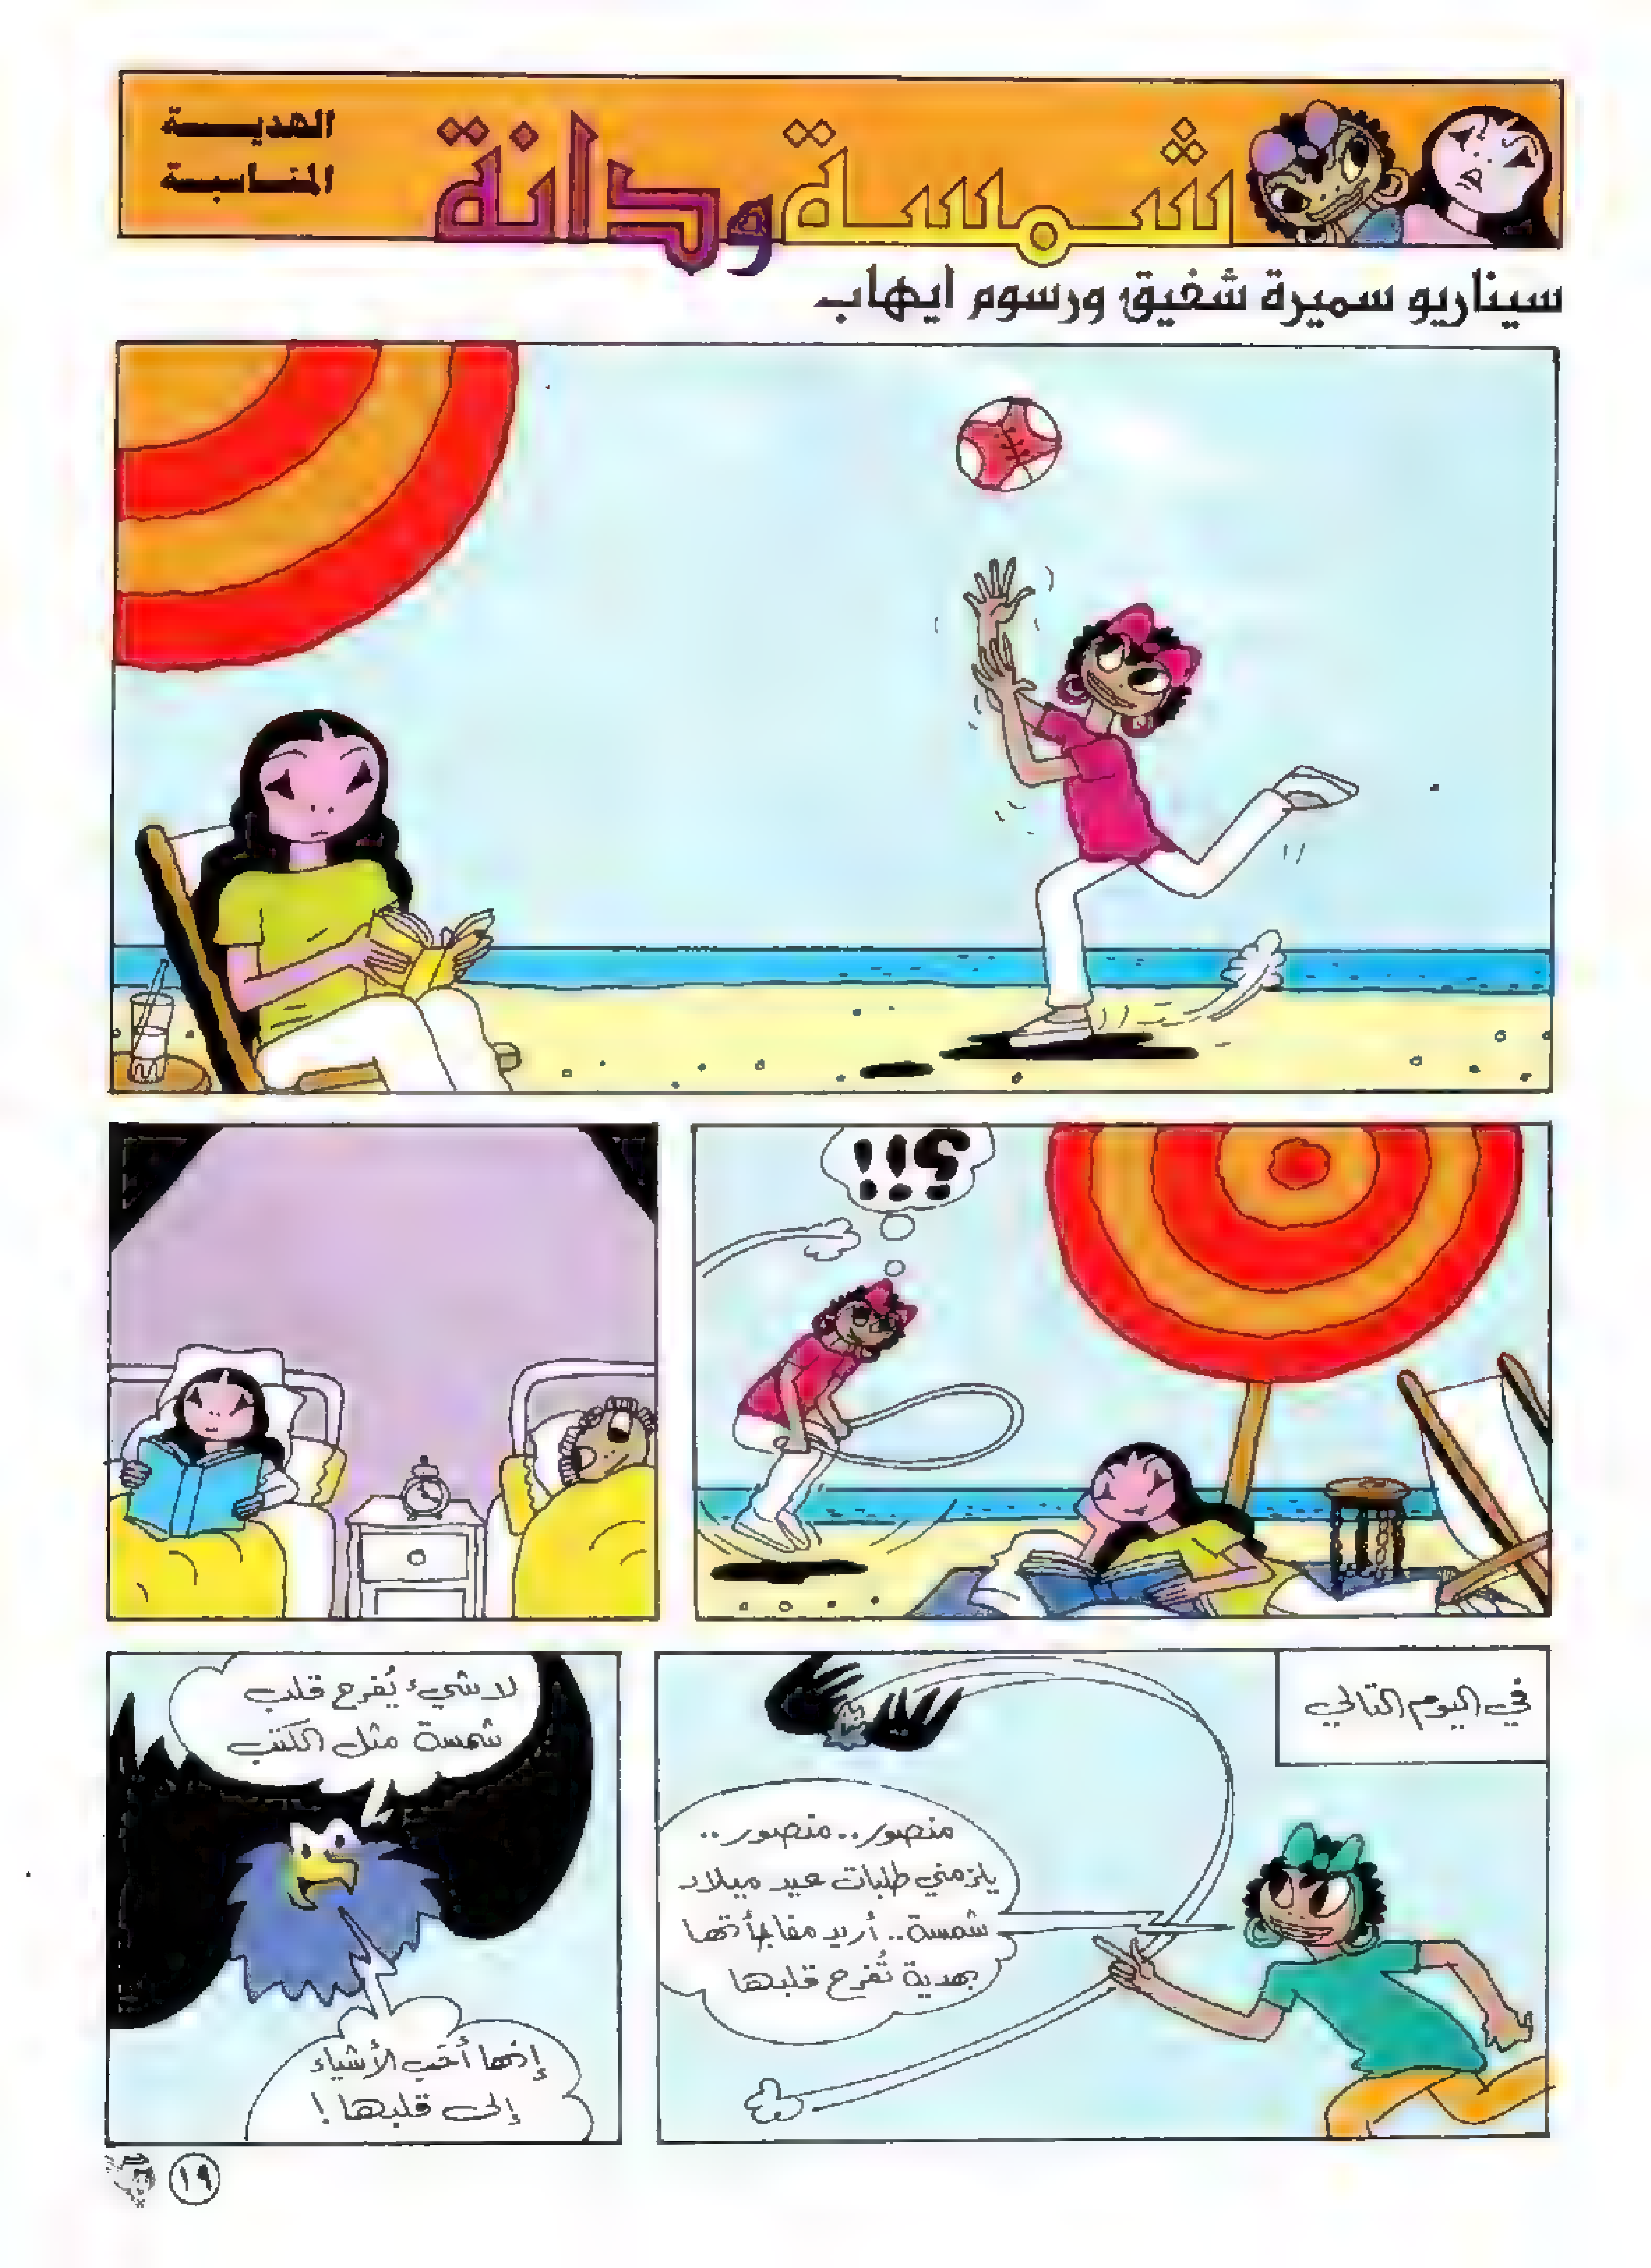 شمسة ودانة
الهديـــــة
المناسبة
سيناريو سميرة شفيق ورسوم ايهاب
؟!!
في اليوم التالي
منصور.. منصور..
يلزمني طلبات عيد ميلاد
شمسة.. أريد مفاجأتها
بهدية تُفرح قلبها
لا شيء يُفرح قلب
شمسة مثل الكتب
إنها أحب الأشياء
إلى قلبها!
١٩